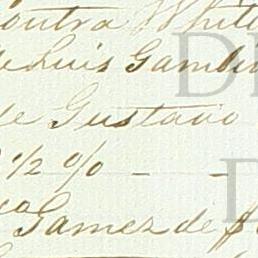 contra White
de Luis Gambi
de Gustavo
1/2 % - -
Gamez de